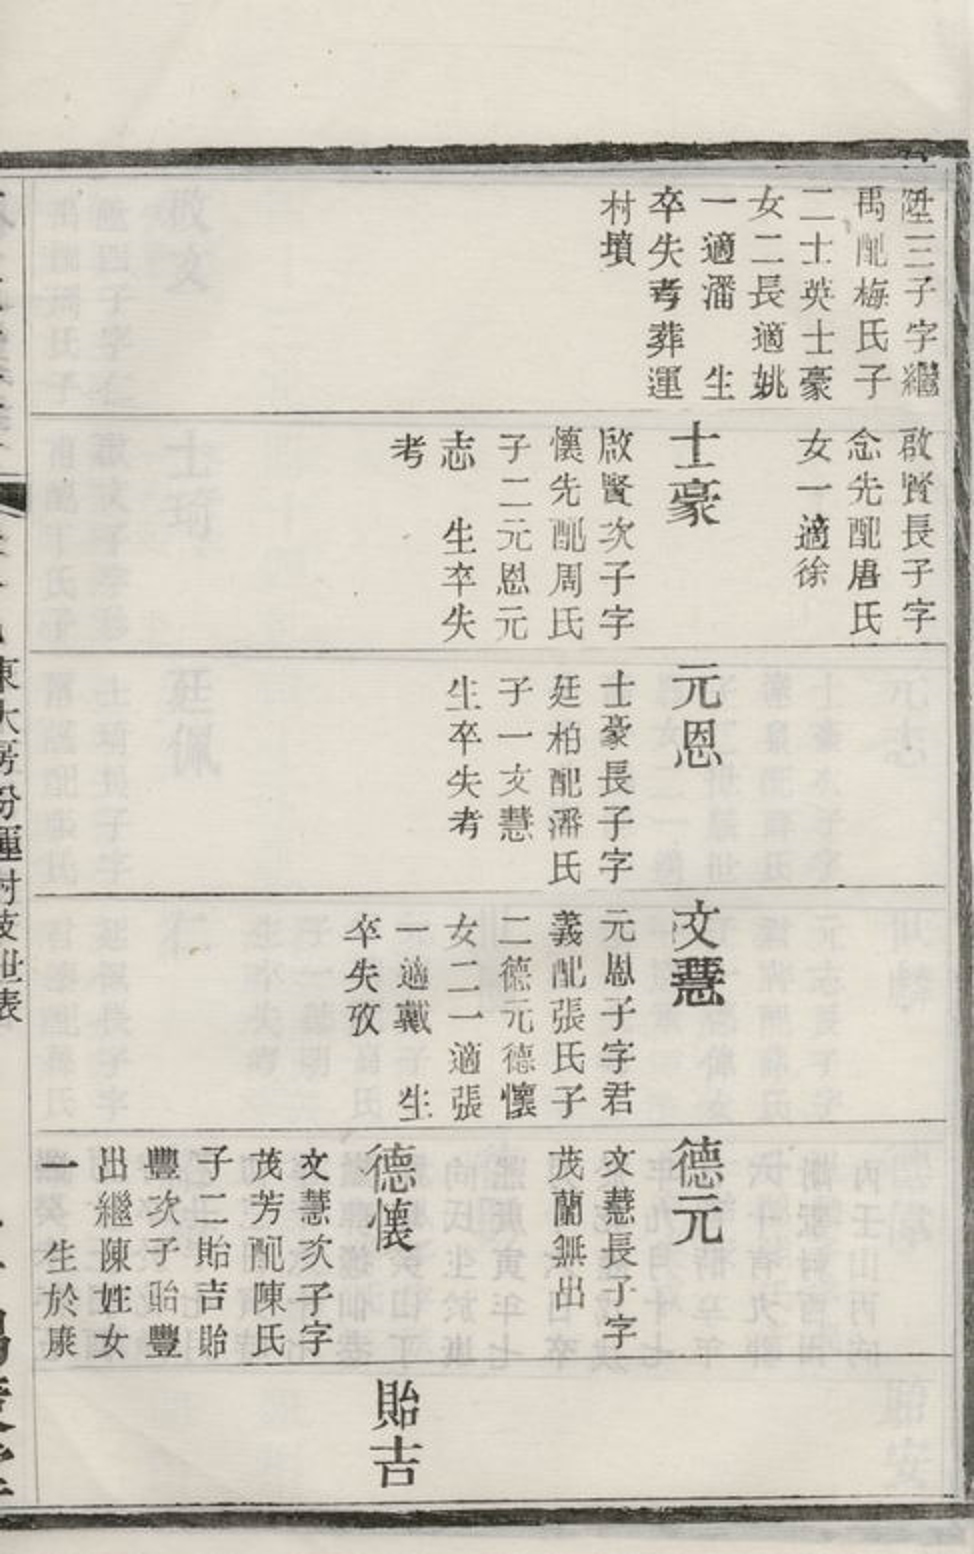 陞三子字繼
禹配梅氏子
二士英士豪
女二長適姚
一適潘　生
卒失考葬運
村墳
啟賢長子字
念先配唐氏
女一適徐
士豪
啟賢次子字
懷先配周氏
子二元恩元
志　生卒失
考
元恩
士豪長子字
廷柏配潘氏
子一文慧
生卒失考
文慧
元恩子字君
義配張氏子
二德元德懷
女二一適張
一適戴　生
卒失攷
德元
文慧長子字
茂蘭無出
德懷
文慧次子字
茂芳配陳氏
子二貽吉貽
豐次子貽豐
出繼陳姓女
一　生於康
貽吉
東大房分運村支世表